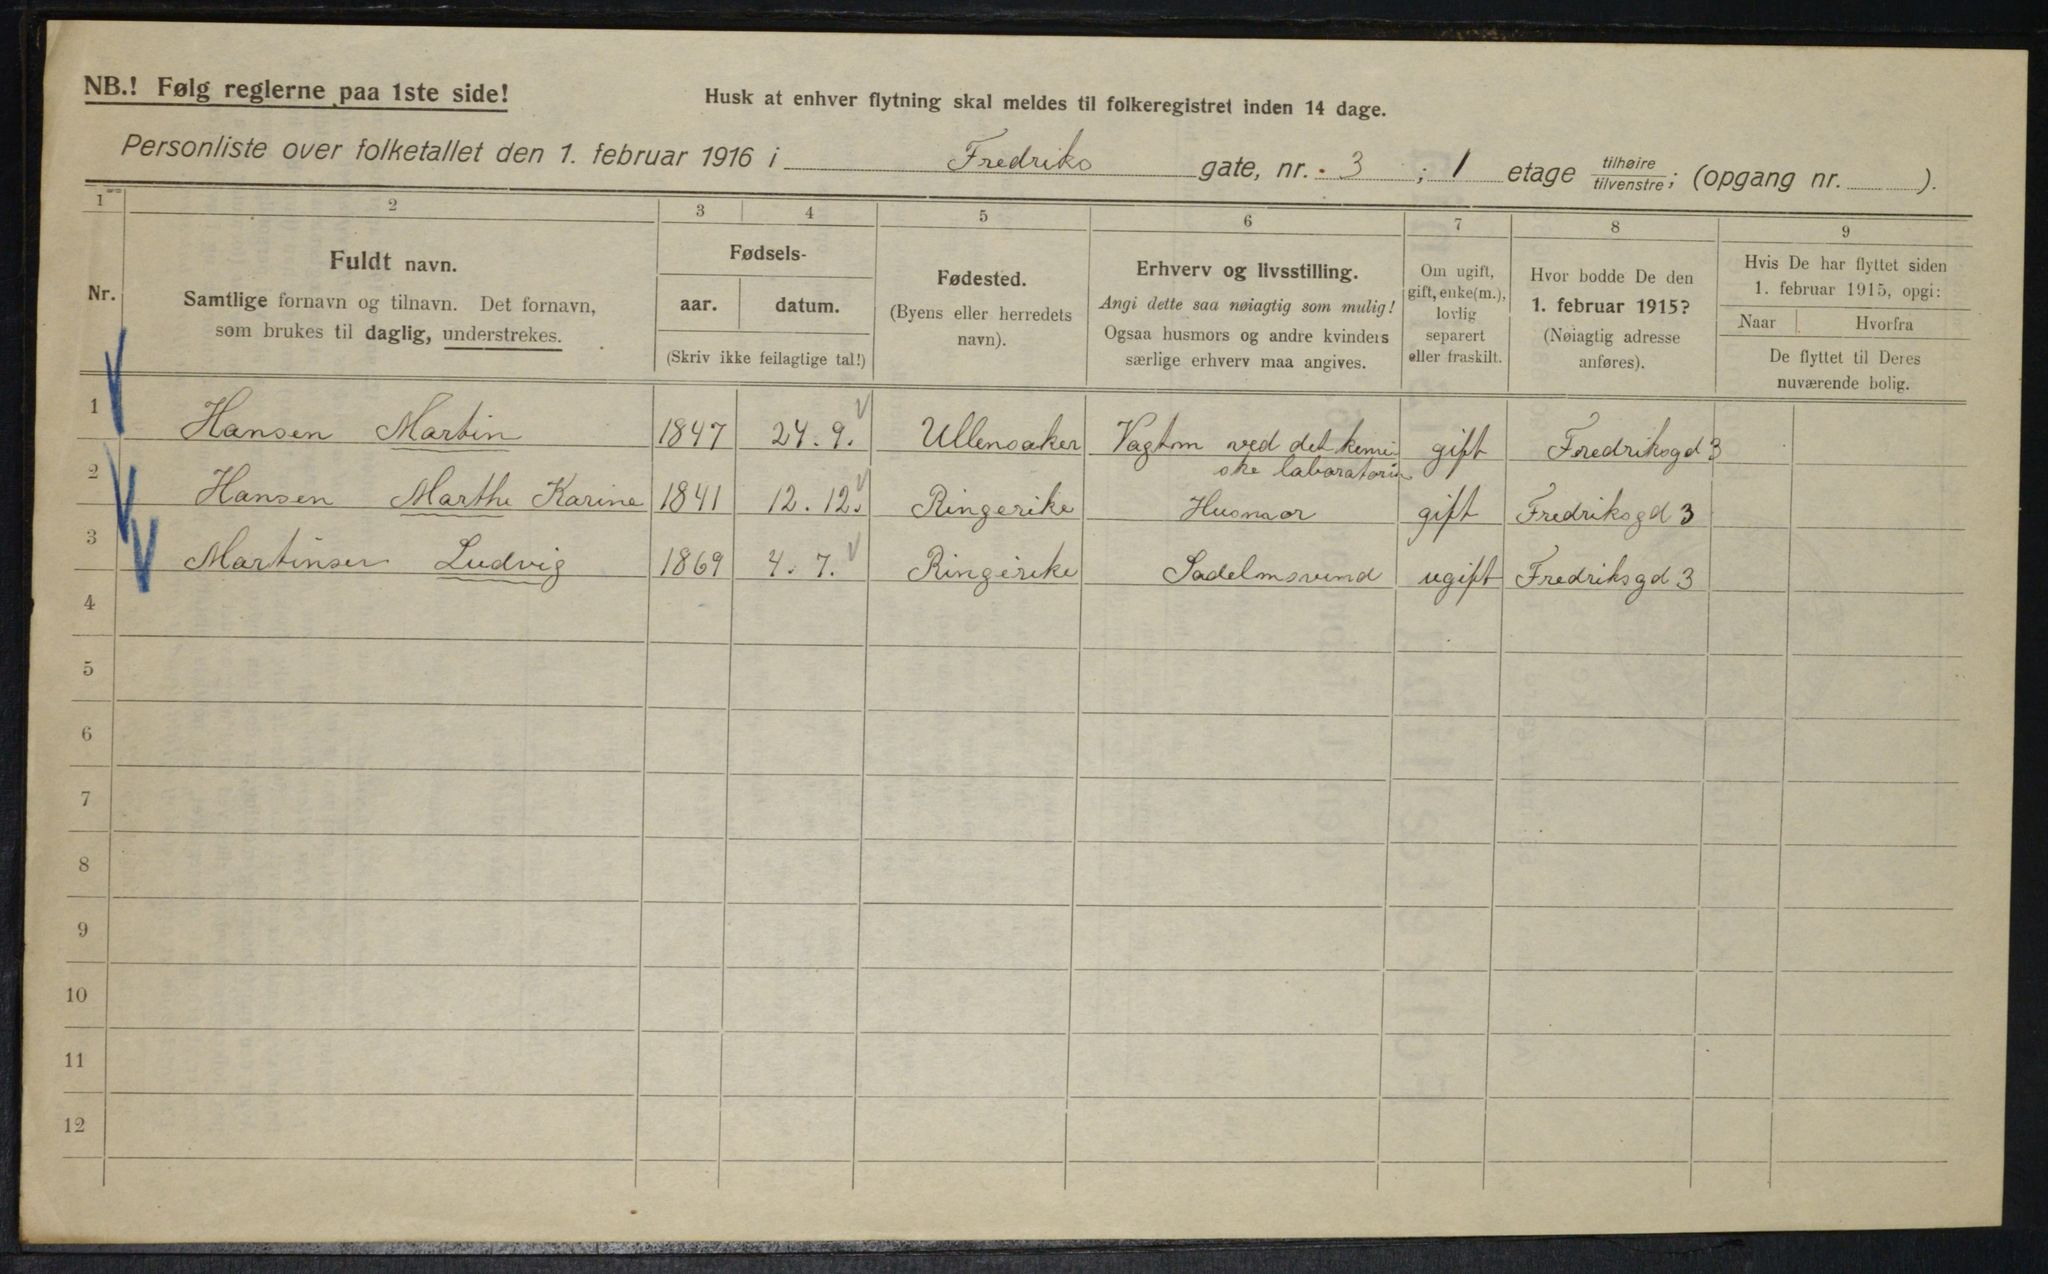 NB.! Følg reglerne paa 1ste side!
Husk at enhver flytning skal meldes til folkeregistret inden 14 dage.
Personliste over folketallet den 1. februar 1916 i Fredriks gate, nr. 3 ; 1 etage tilhøire/tilvenstre; (opgang nr. ).
1 2 3 4 5 6 7 8 9
Nr.
Fuldt navn.
Samtlige fornavn og tilnavn. Det fornavn,
som brukes til daglig, understrekes.
Fødsels-
aar. datum.
(Skriv ikke feilagtige tal!)
Fødested.
(Byens eller herredets
navn).
Erhverv og livsstilling.
Angi dette saa nøiagtig som mulig!
Ogsaa husmors og andre kvinders
særlige erhverv maa angives.
Om ugift,
gift, enke(m.),
lovlig
separert
eller fraskilt.
Hvor bodde De den
1. februar 1915?
(Nøiagtig adresse
anføres).
Hvis De har flyttet siden
1. februar 1915, opgi:
Naar Hvorfra
De flyttet til Deres
nuværende bolig.
1 Hansen Martin 1847 24.9. Ullensaker Vagtm ved det kemi- gift Fredriksgd 3
ske laboratorium
2 Hansen Marthe Karine 1841 12.12. Ringerike Husmor gift Fredriksgd 3
3 Martinsen Ludvig 1869 4.7. Ringerike Sadelmsvend ugift Fredriksgd 3
4
5
6
7
8
9
10
11
12